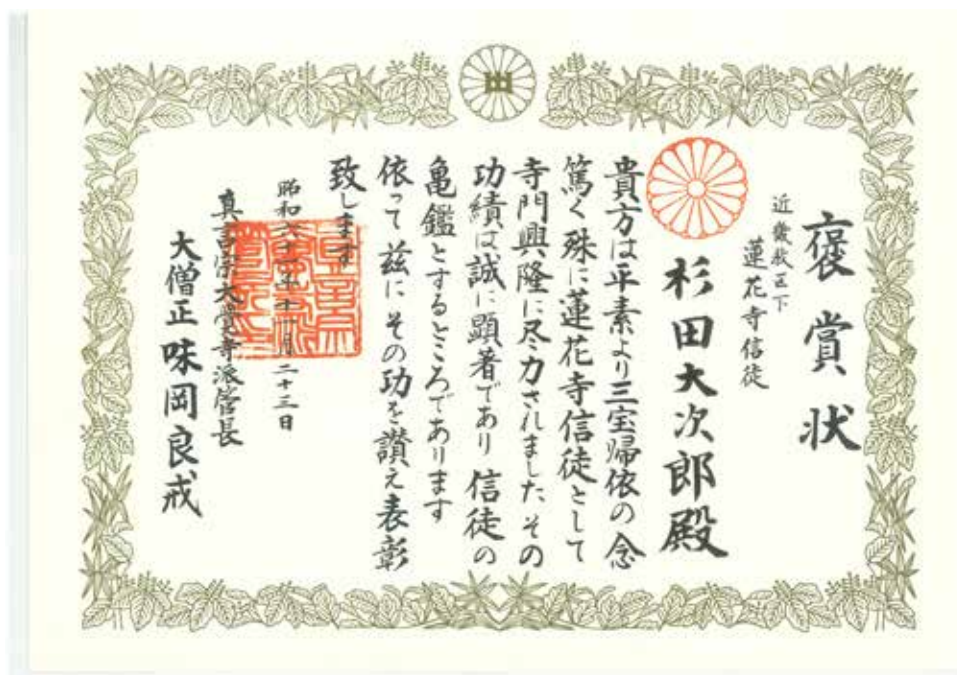 褒賞状
近畿教区下
蓮花寺信徒
杉田大次郎殿
貴方は平素より三宝帰依の念
篤く殊に蓮花寺信徒として
寺門興隆に尽力されました その
功績は誠に顕著であり 信徒の
亀鑑とするところであります
依って茲にその功を讃え表彰
致します
昭和六十 年十一月二十三日
真言宗大覺寺派管長
大僧正 味岡良戒